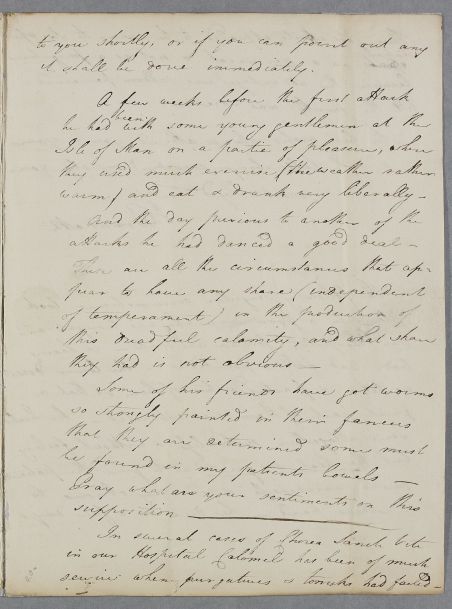 to you shortly, or if you can point out any
it shall be done immediately.
A few weeks before the first attack
been
he had with some young gentlemen at the
Isle of Man on a partie of pleasure, when
they used much exercise (the weather rather
warm) and eat & drank very liberally –
And the day previous to another of the
attacks he had danced a good deal –
These are all the circumstances that ap-
pear to have any share (independent
of temperament) in the production of
this dreadful calamity, and what share
they had is not obvious –
Some of his friends have got worms
so strongly painted in their fancies
that they are determined some must
be found in my patients bowels –
Pray what are your sentiments on this
supposition
In several cases of Chorea Sancti Viti
in our Hospital Calomel has been of much
service when purgatives & tonicks had failed –